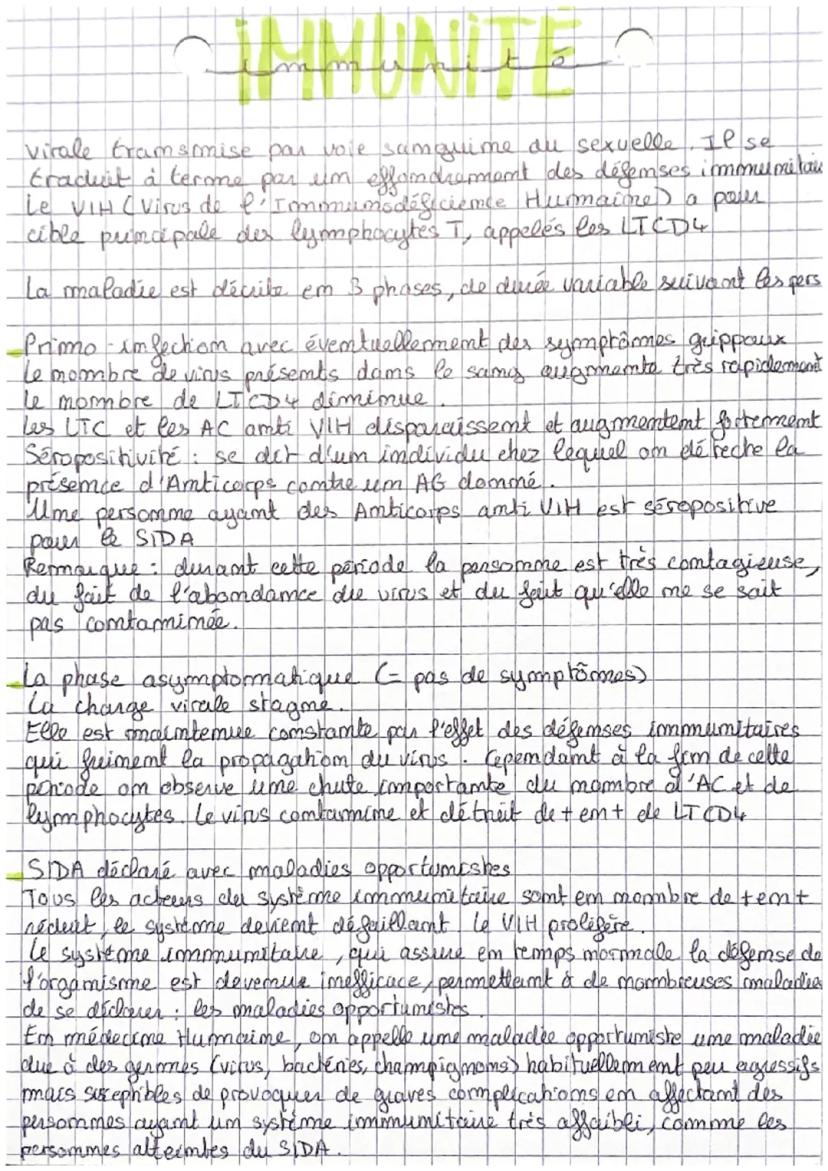 IMMUNITÉ
immunité
virale transmise par voie sanguine ou sexuelle. Il se
traduit à terme par un effondrement des défenses immunitai
Le VIH (Virus de l'Immunodéficience Humaine) a pour
cible principale des lymphocytes T, appelés les LTCD4
La maladie est décrite en 3 phases, de durée variable suivant les pers
Primo-infection avec éventuellement des symptômes grippaux
Le nombre de virus présents dans le sang augmente très rapidement
Le nombre de LTCD4 diminue.
Les LTC et les AC anti VIH disparaissent et augmentent fortement
Séropositivité : se dit d'un individu chez lequel on détecte la
présence d'Anticorps contre un AG donné.
Une personne ayant des Anticorps anti VIH est séropositive
pour le SIDA
Remarque : durant cette période la personne est très contagieuse,
du fait de l'abondance du virus et du fait qu'elle ne se sait
pas contaminée.
La phase asymptomatique (= pas de symptômes)
La charge virale stagne.
Elle est maintenue constante par l'effet des défenses immunitaires
qui freinent la propagation du virus. Cependant à la fin de cette
période on observe une chute importante du nombre d'AC et de
lymphocytes. Le virus contamine et détruit de + en + de LTCD4
SIDA déclaré avec maladies opportunistes
Tous les acteurs du système immunitaire sont en nombre de + en +
réduit, le système devient défaillant, le VIH prolifère.
Le système immunitaire, qui assure en temps normale la défense de
l'organisme est devenue inefficace, permettant à de nombreuses maladies
de se déclarer : les maladies opportunistes.
En médecine Humaine, on appelle une maladie opportuniste une maladie
due à des germes (virus, bactéries, champignons) habituellement peu agressifs
mais suseptibles de provoquer de graves complications en affectant des
personnes ayant un système immunitaire très affaibli, comme les
personnes atteintes du SIDA.